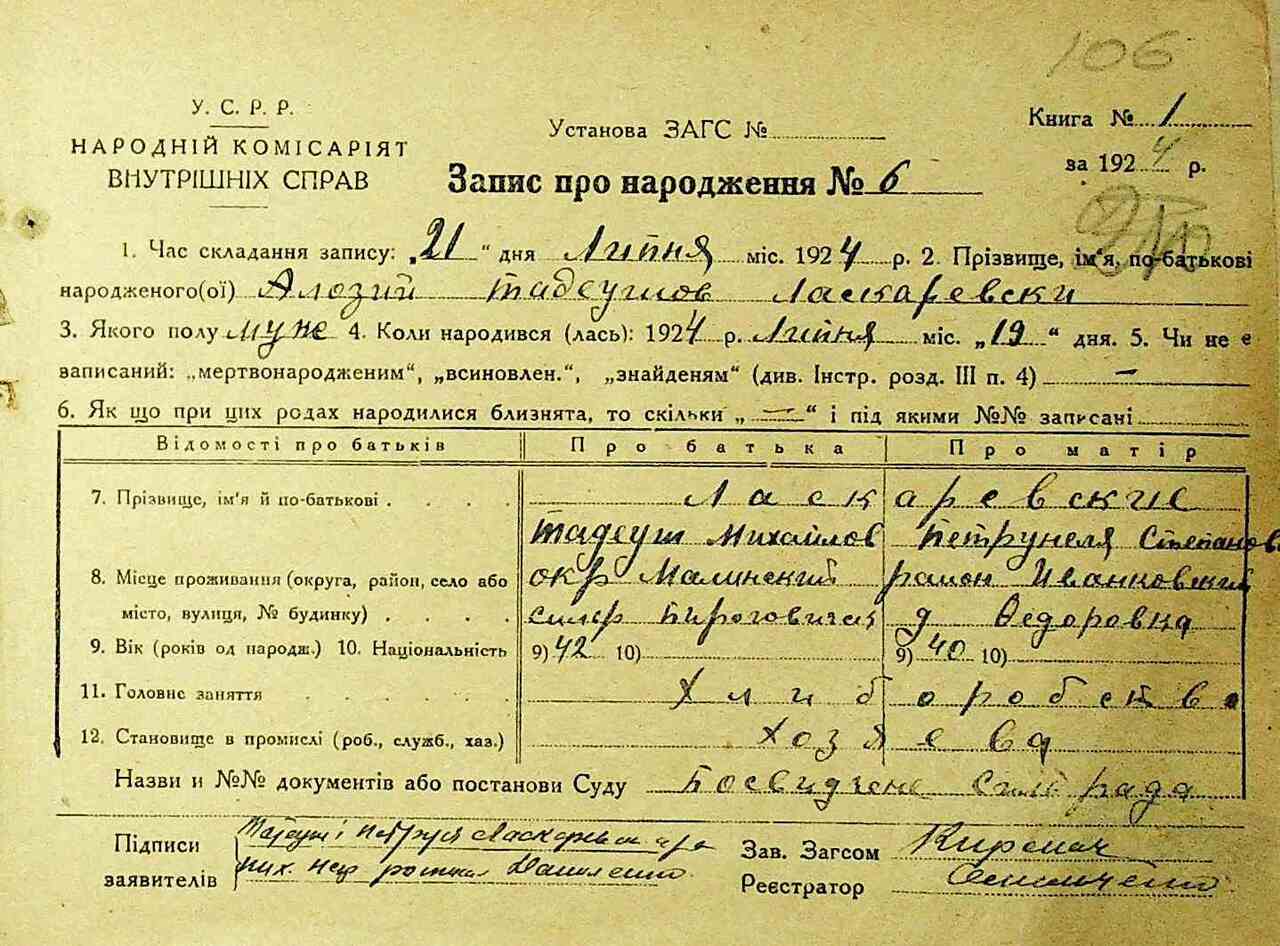 106
У. С. Р. Р.
НАРОДНІЙ КОМІСАРІЯТ
ВНУТРІШНІХ СПРАВ
Установа ЗАГС №
Книга № 1
за 1924 р.
Запис про народження № 6
1. Час складання запису: „21“ дня Липня міс. 1924 р. 2. Прізвище, ім'я, по-батькові
народженого(ої) Алозий Тадеушов Ласкаревски
3. Якого полу муж 4. Коли народився (лась): 1924 р. Липня міс. „19“ дня. 5. Чи не є
записаний: „мертвонародженим“, „всиновлен.“, „знайденям“ (див. Інстр. розд. III п. 4) —
6. Як що при цих родах народилися близнята, то скільки „—“ і під якими №№ записані
Відомості про батьків Про батька Про матір
7. Прізвище, ім'я й по-батькові . . . . Ласкаревские
Тадеуш Михайлов Петрунеля Степанов
8. Місце проживання (округа, район, село або окр Малинский район Иванковский
місто, вулиця, № будинку) . . . . д Федоровка
9. Вік (років од народж.) 10. Національність 9) 42 10) 9) 40 10)
11. Головне заняття . . . . . Хлиборобство
12. Становище в промислі (роб., служб., хаз.) хозяева
Назви и №№ документів або постанови Суду Посвидчене Силь рада
Підписи
заявителів
Зав. Загсом
Реєстратор